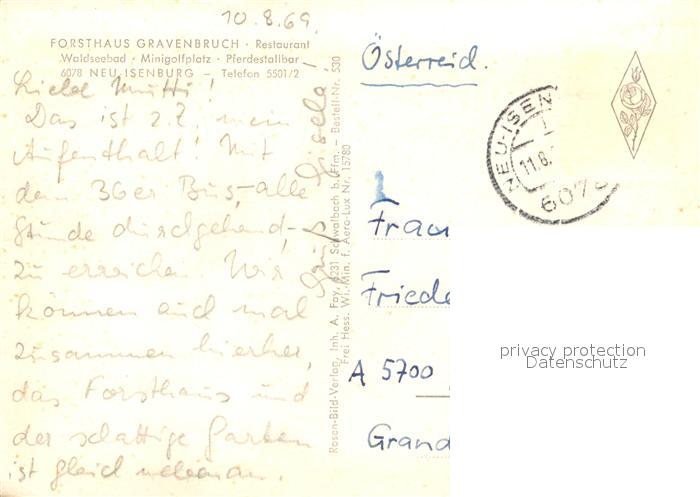 10.8.69.
FORSTHAUS GRAVENBRUCH · Restaurant
Waldseebad · Minigolfplatz · Pferdestallbar
6078 NEU ISENBURG – Telefon 5501/2
Liebe Mutti!
Das ist z.Z. mein
Aufenthalt! Mit
dem 36er Bus, alle
Stunde durchgehend,
zu erreichen. Wir
können auch mal
zusammen hierher,
das Forsthaus und
der schattige Garten
ist gleich nebenan.
Gruß Gisela!
Rosen-Bild-Verlag, Inh. A. Fay, 6231 Schwalbach b. Ffm. – Bestell-Nr. 530
Frei Hess. Wi. Min. f. Aero-Lux Nr. 15780
Österreich.
NEU-ISEN
1
11.8.
6078
Frau
Friede
A 5700
Grand
privacy protection
Datenschutz